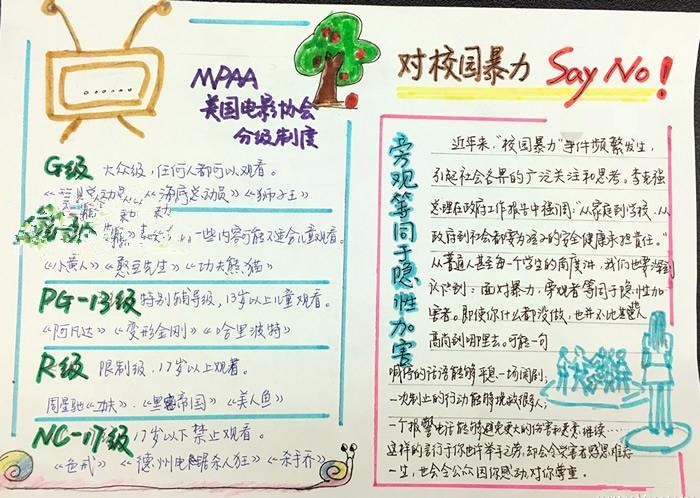 MPAA
美国电影协会
分级制度
G级 大众级，任何人都可以观看。
总动员》《海底总动员》《狮子王》
一些内容可能不适合儿童观看。
《小黄人》《憨豆先生》《功夫熊猫》
PG-13级 特别辅导级，13岁以上儿童观看。
《阿凡达》《变形金刚》《哈里波特》
R级 限制级，17岁以上观看。
周星驰《功夫》.《黑客帝国》《美人鱼》
NC-17级 17岁以下禁止观看。
《色戒》《德州电锯杀人狂》《杀手乔》
对校园暴力 Say No！
旁观等同于隐性加害
近年来，“校园暴力”事件频繁发生，
引起社会各界的广泛关注和思考。李克强
总理在政府工作报告中强调：“从家庭到学校、从
政府到社会都要为孩子的安全健康承担责任。”
从普通人甚至每一个学生的角度讲，我们也要
认识到：面对暴力，旁观者等同于隐性加
害者。即使你什么都没做，也并不比
高尚到哪里去。可能一句
喊停的话语能够平息一场闹剧；
一次制止的行动能够挽救很多人；
一个报警电话能够避免更大的伤害和恶意继续……
这样的言行于你也许举手之劳，却会令受害者感恩
一生，也会令公众因你感动，对你尊重。